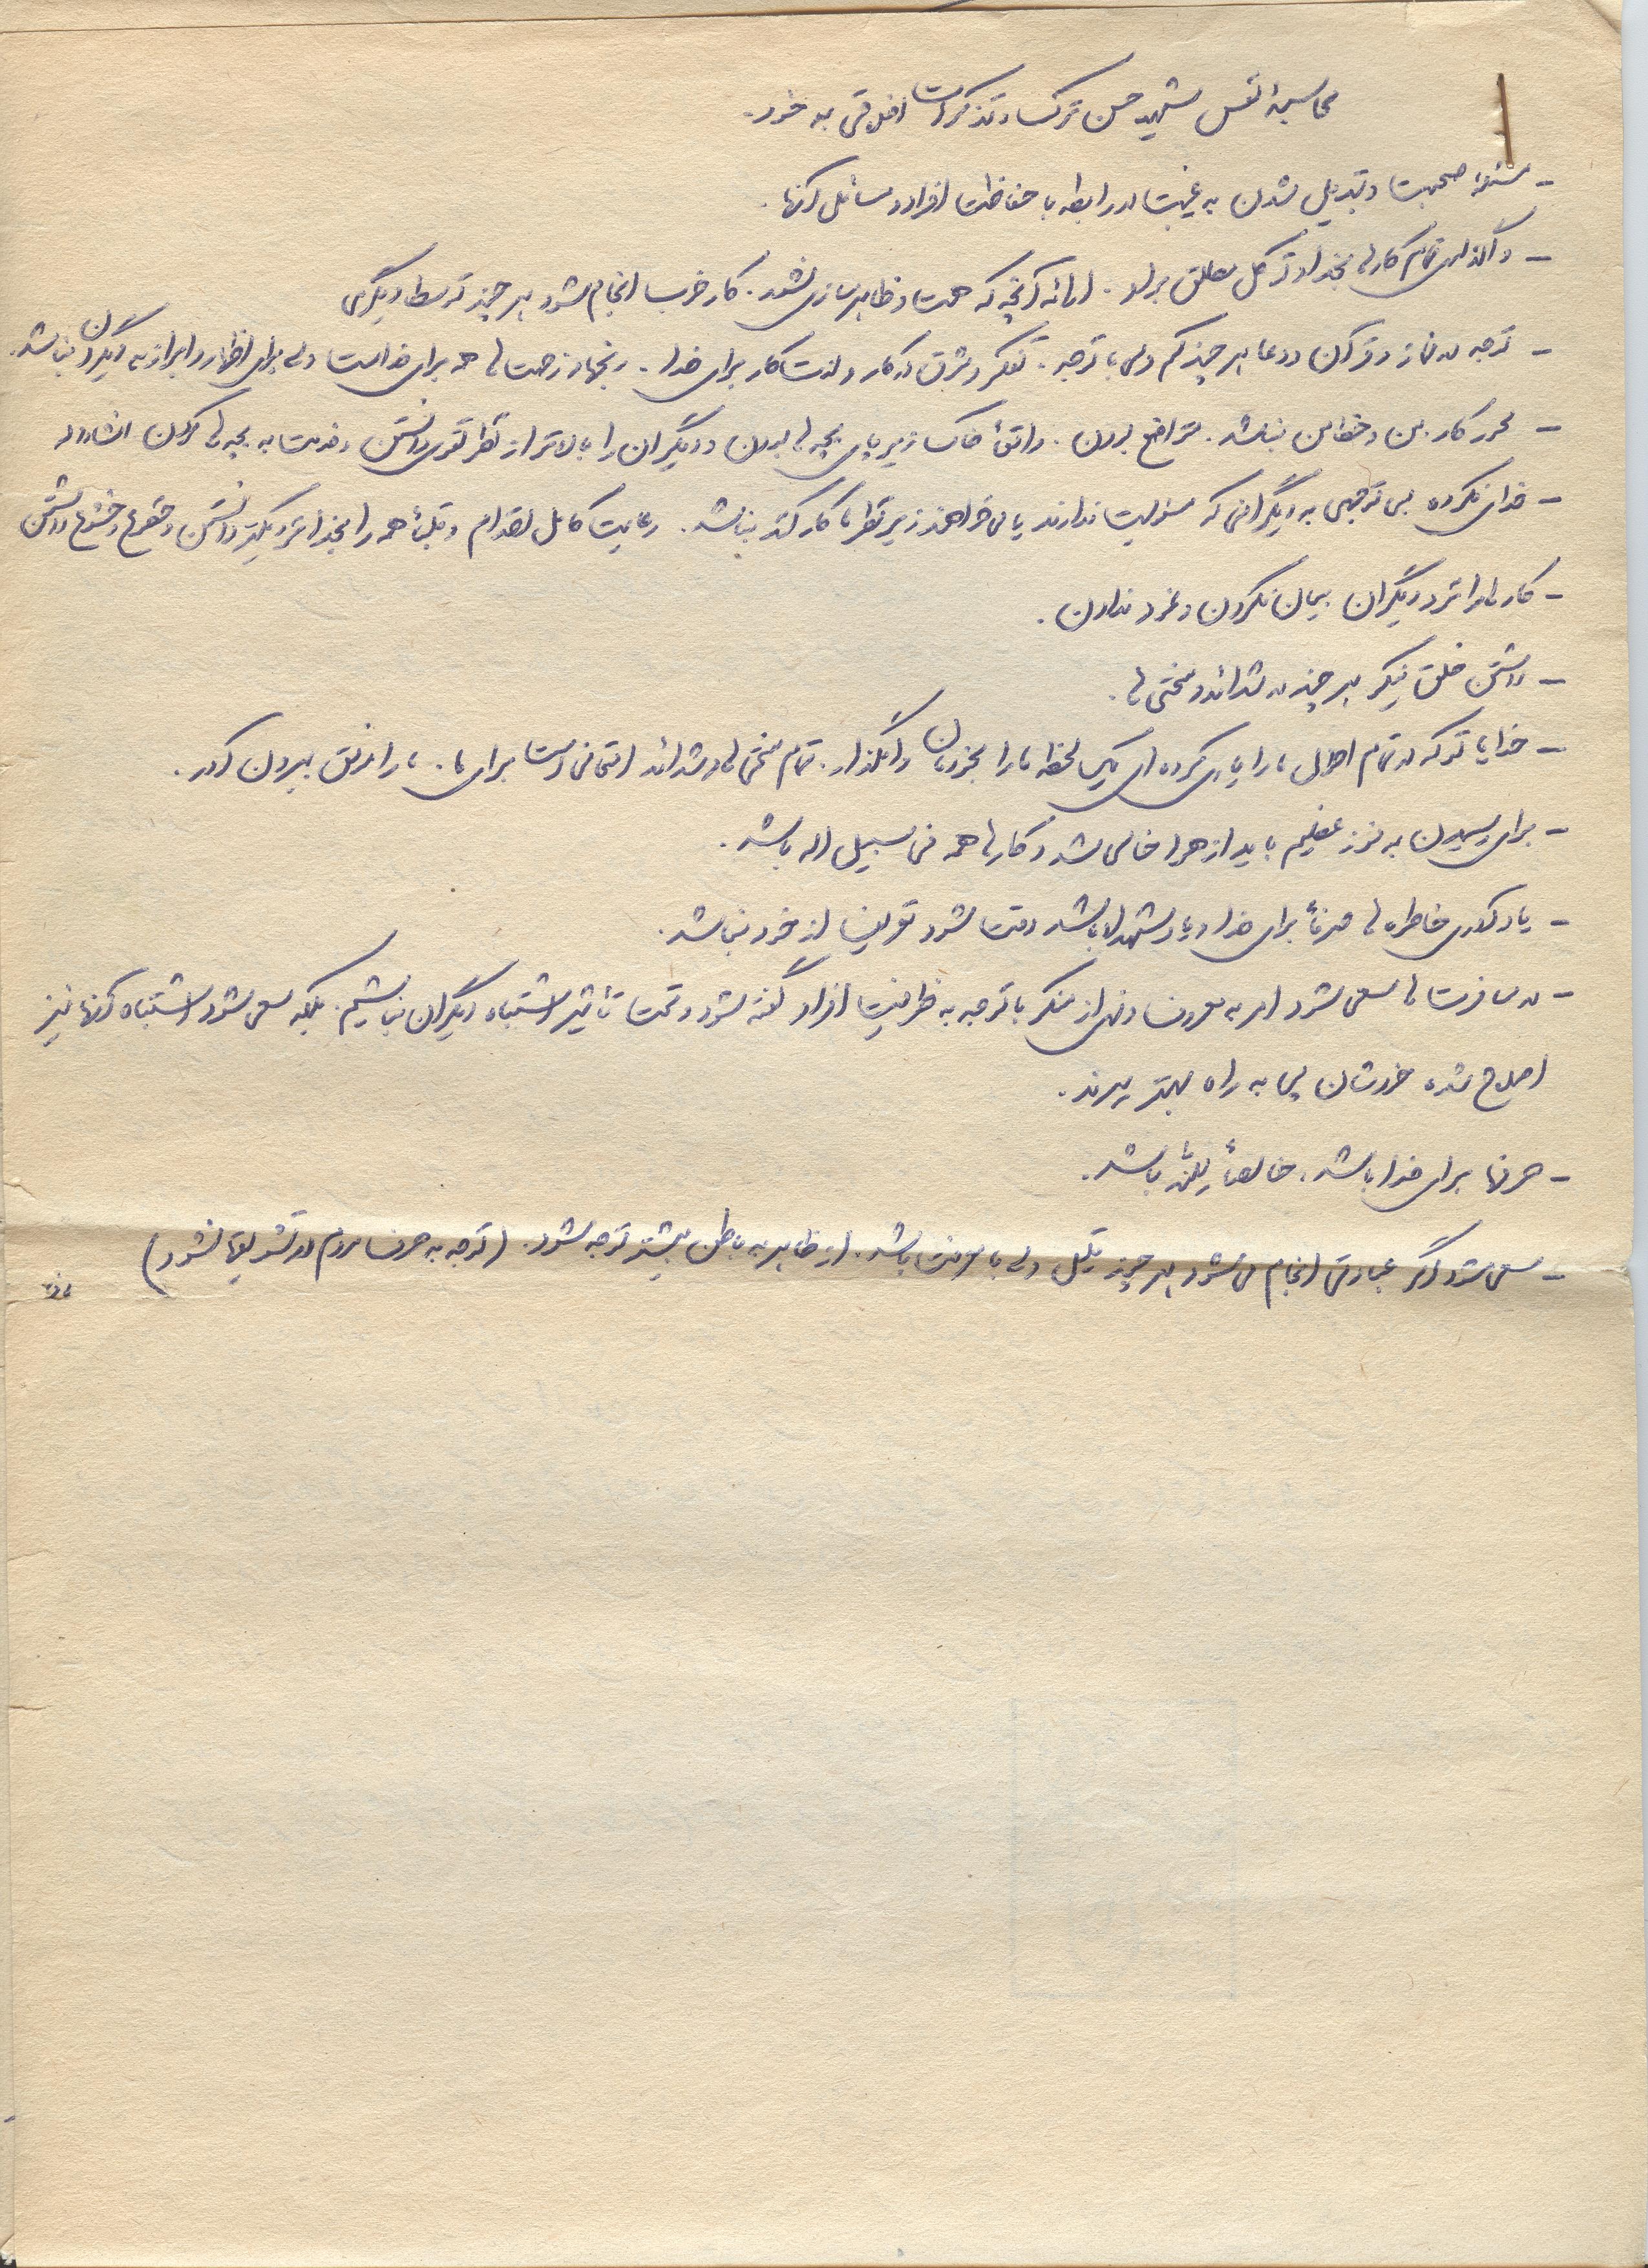 محاسبهٔ نفس شهید حسن ترک و تذکرات اخلاقی به خود.
- مسئله صحبت و تبدیل شدن به غیبت در رابطه با حفاظت افراد و مسائل آنها.
- واگذاری تمام کارها بخدا و توکل مطلق بر او. ارائه آنچه که هست و ظاهرسازی نشود. کار خوب انجام شود هر چند توسط دیگری
- توجه در نماز و قرآن و دعا هر چند کم ولی با توجه. تفکر و شوق در کار و لذت کار برای خدا. رنجها و زحمت ها همه برای خداست ولی برای اظهار و ابراز به دیگران نباشد.
- محور کار من و خط من نباشد. متواضع بودن. واقعاً خاک زیر پای بچه ها بودن و دیگران را بالاتر از نظر تقوی دانستن و خدمت به بچه ها کردن انشاءاله
- خدای نکرده بی توجهی به دیگرانی که مسئولیت ندارند یا می خواهند زیر نظر ما کار کنند نباشد. رعایت کامل احترام و قلباً همه را بخدا نزدیکتر دانستن و خضوع و خشوع داشتن
- کارها را نزد دیگران بیان نکردن و نمود ندادن.
- داشتن خلق نیکو هر چند در شدائد و سختی ها.
- خدایا تو که در تمام احوال ما را یاری کرده ای یک لحظه ما را بخودمان وامگذار. تمام سختی ها و شدائد امتحانی است برای ما. ما را موفق بیرون آور.
- برای رسیدن به فوز عظیم باید از هوا خالی شد و کارها همه فی سبیل اله باشد.
- یادآوری خاطره ها صرفاً برای خدا و یاد شهدا باشد دقت شود تعریف از خود نباشد.
- در مسافرت ها سعی شود امر به معروف و نهی از منکر با توجه به ظرفیت افراد گفته شود و تحت تأثیر اشتباه دیگران نباشیم. بلکه سعی شود اشتباه آنها نیز
اصلاح شده خودشان پی به راه بهتر ببرند.
- صرفا برای خدا باشد. خالصاً لله باشد.
- سعی شود اگر عبادتی انجام می شود هر چند قلیل ولی با معرفت باشد. از ظاهر به باطن بیشتر توجه شود. (توجه به حرف مردم در تشویقها نشود)